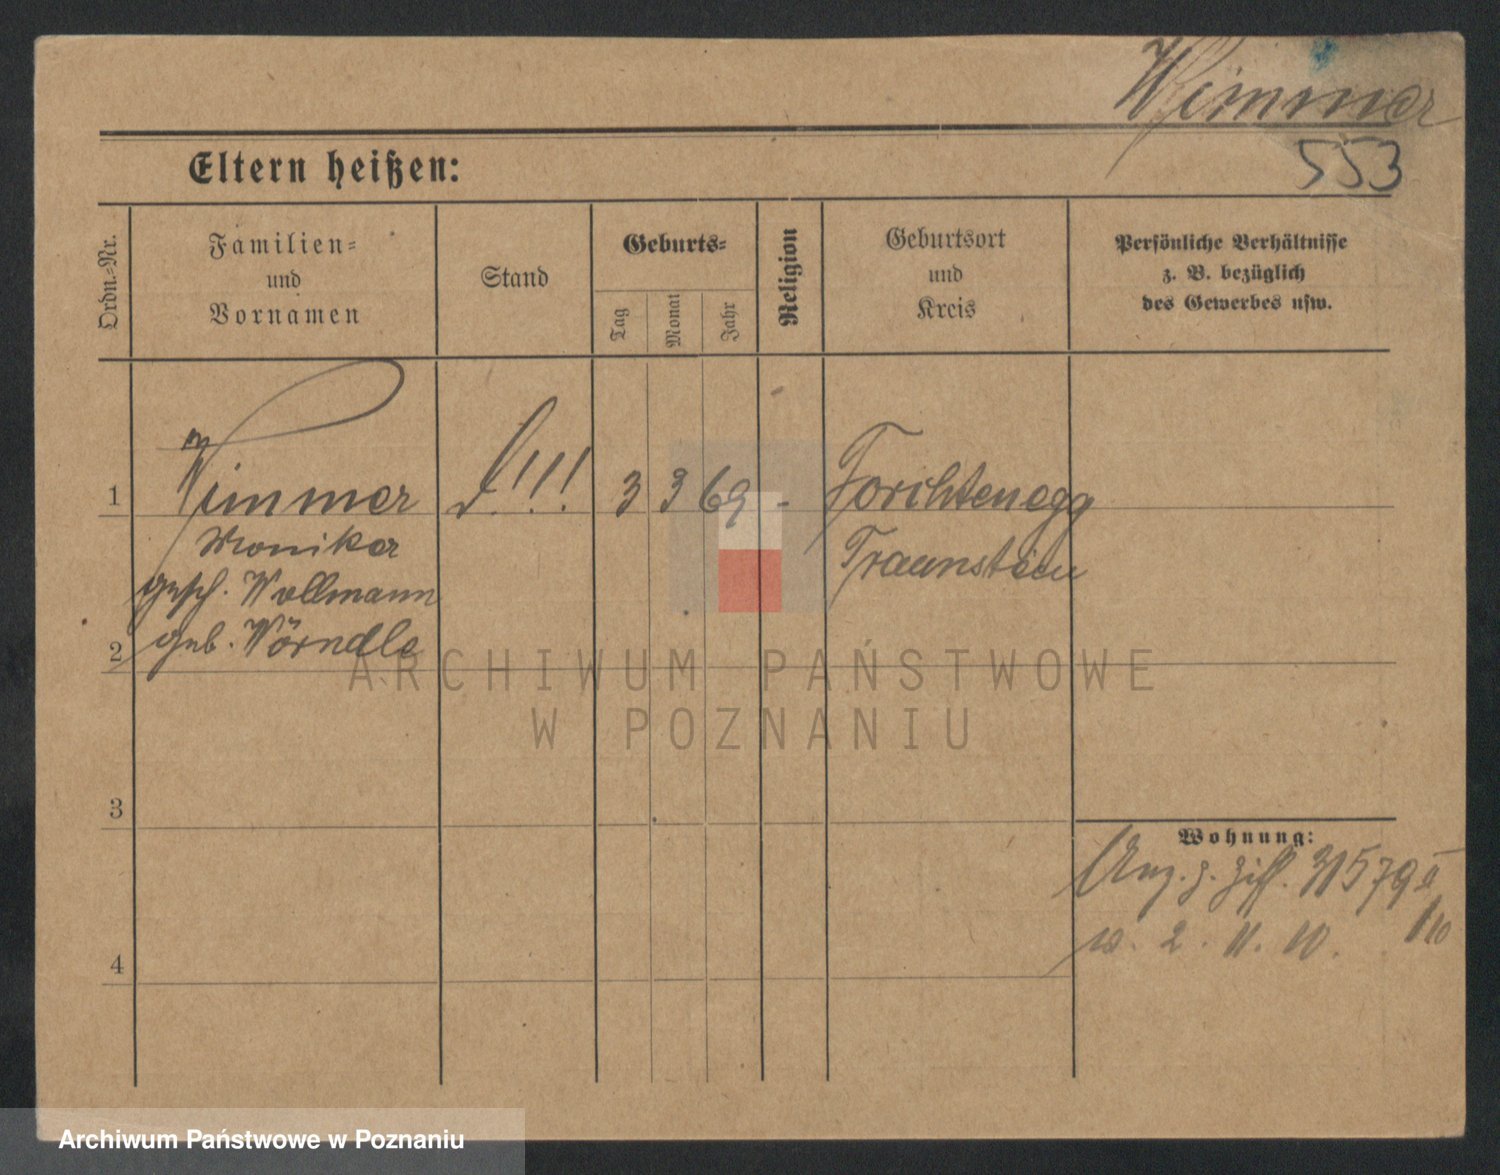 Wimmer
553
Eltern heißen:
Ordn.-Nr.
Familien- und Vornamen
Stand
Geburts-
Tag
Monat
Jahr
Religion
Geburtsort und Kreis
Persönliche Verhältnisse
z. B. bezüglich
des Gewerbes usw.
1
Wimmer
!!!
3 3 69 -
Forchtenegg
Monika
Traunstein
gesch. Wollmann
2
geb. Wörndle
ARCHIWUM PAŃSTWOWE
W POZNANIU
3
Wohnung:
Anz. z. Ziff. 31579 II
1/10
v. 2. 11. 10.
4
Archiwum Państwowe w Poznaniu